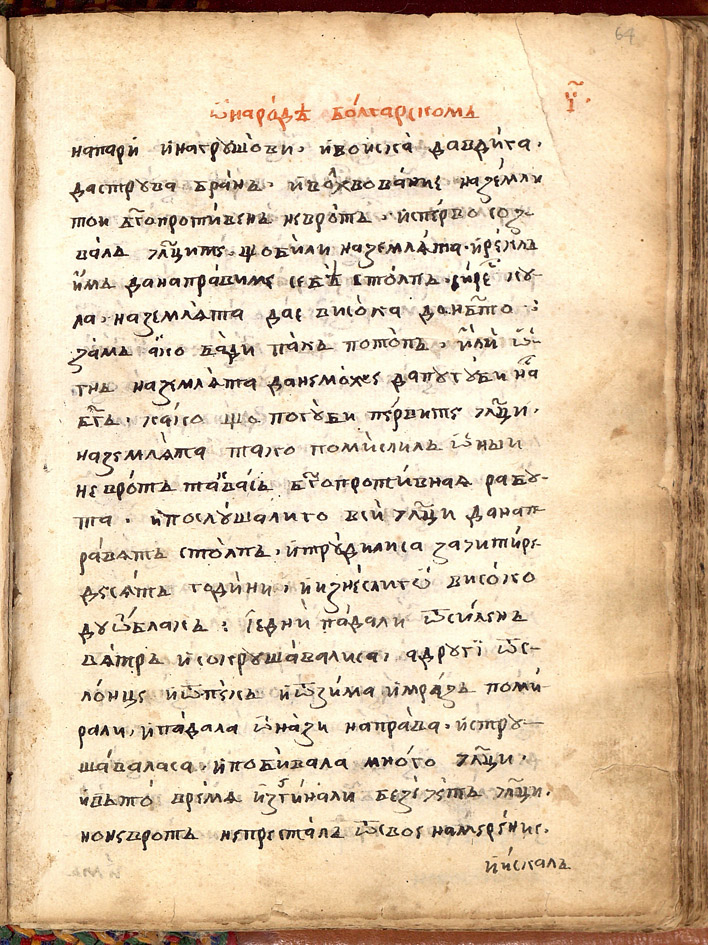 64
ѡ҆ наро́дѣ бо́лгарскомъ
г҃і.
напари̂ и҆нагрꙋшо́ви. и҆войска̀ давди́га.
даструва бра́нь. и҆во́хвова́ние наземли
тои бг҃опроти́венъ невро́тъ. и҆спе́рво соз
ва́лъ лю́ците, що били наземлѧ́та. и҆ре́клъ
и҆̀мъ данапра́виме себѣ̀ столпъ. сирѣ́ч кꙋ
ла. наземлѧ́та дае висока до не́бто.
за́мъ а҆́ко ба́ди па́къ потопъ. и҆лѝ ѻ҆́
гнь наземлѧ́та данемо́же дапугꙋби на́
бг҃ъ. ка́ко що погꙋби пе́рвите лю́ци.
наземлѧ́та тако поми́слилъ ѻ҆́ныи
невро́тъ такава́съ бг҃опроти́внаѧ рабꙋ
та. и҆послꙋ́шалиго всѝ лю́ци данап
ра́вѧтъ столпъ. и҆трꙋди́лиса зачити́ре
десѧ́тъ годи́ни. и҆изне́слиго̀ висо́ко
дꙋ ѻ҆́блакъ: і҆еднѝ па́дали ѿси́ленъ
вѧ́тръ и҆сокрꙋша́валиса, адрꙋгїѝ ѿс
ло́нце и҆ѿпе́къ и҆ѿзи́ма и҆мра́зъ поми́
рали, и҆па́дала ѻ҆на́зи напра́ва. и҆стрꙋ
ша́валаса. и҆поби́вала мно́го лю́ци.
и҆вьто̀ вре́мѧ и҆зги́нали безче́тъ лю́ци.
но невротъ непреста́лъ ѿсвое намере́ние.
и҆и҆скалъ